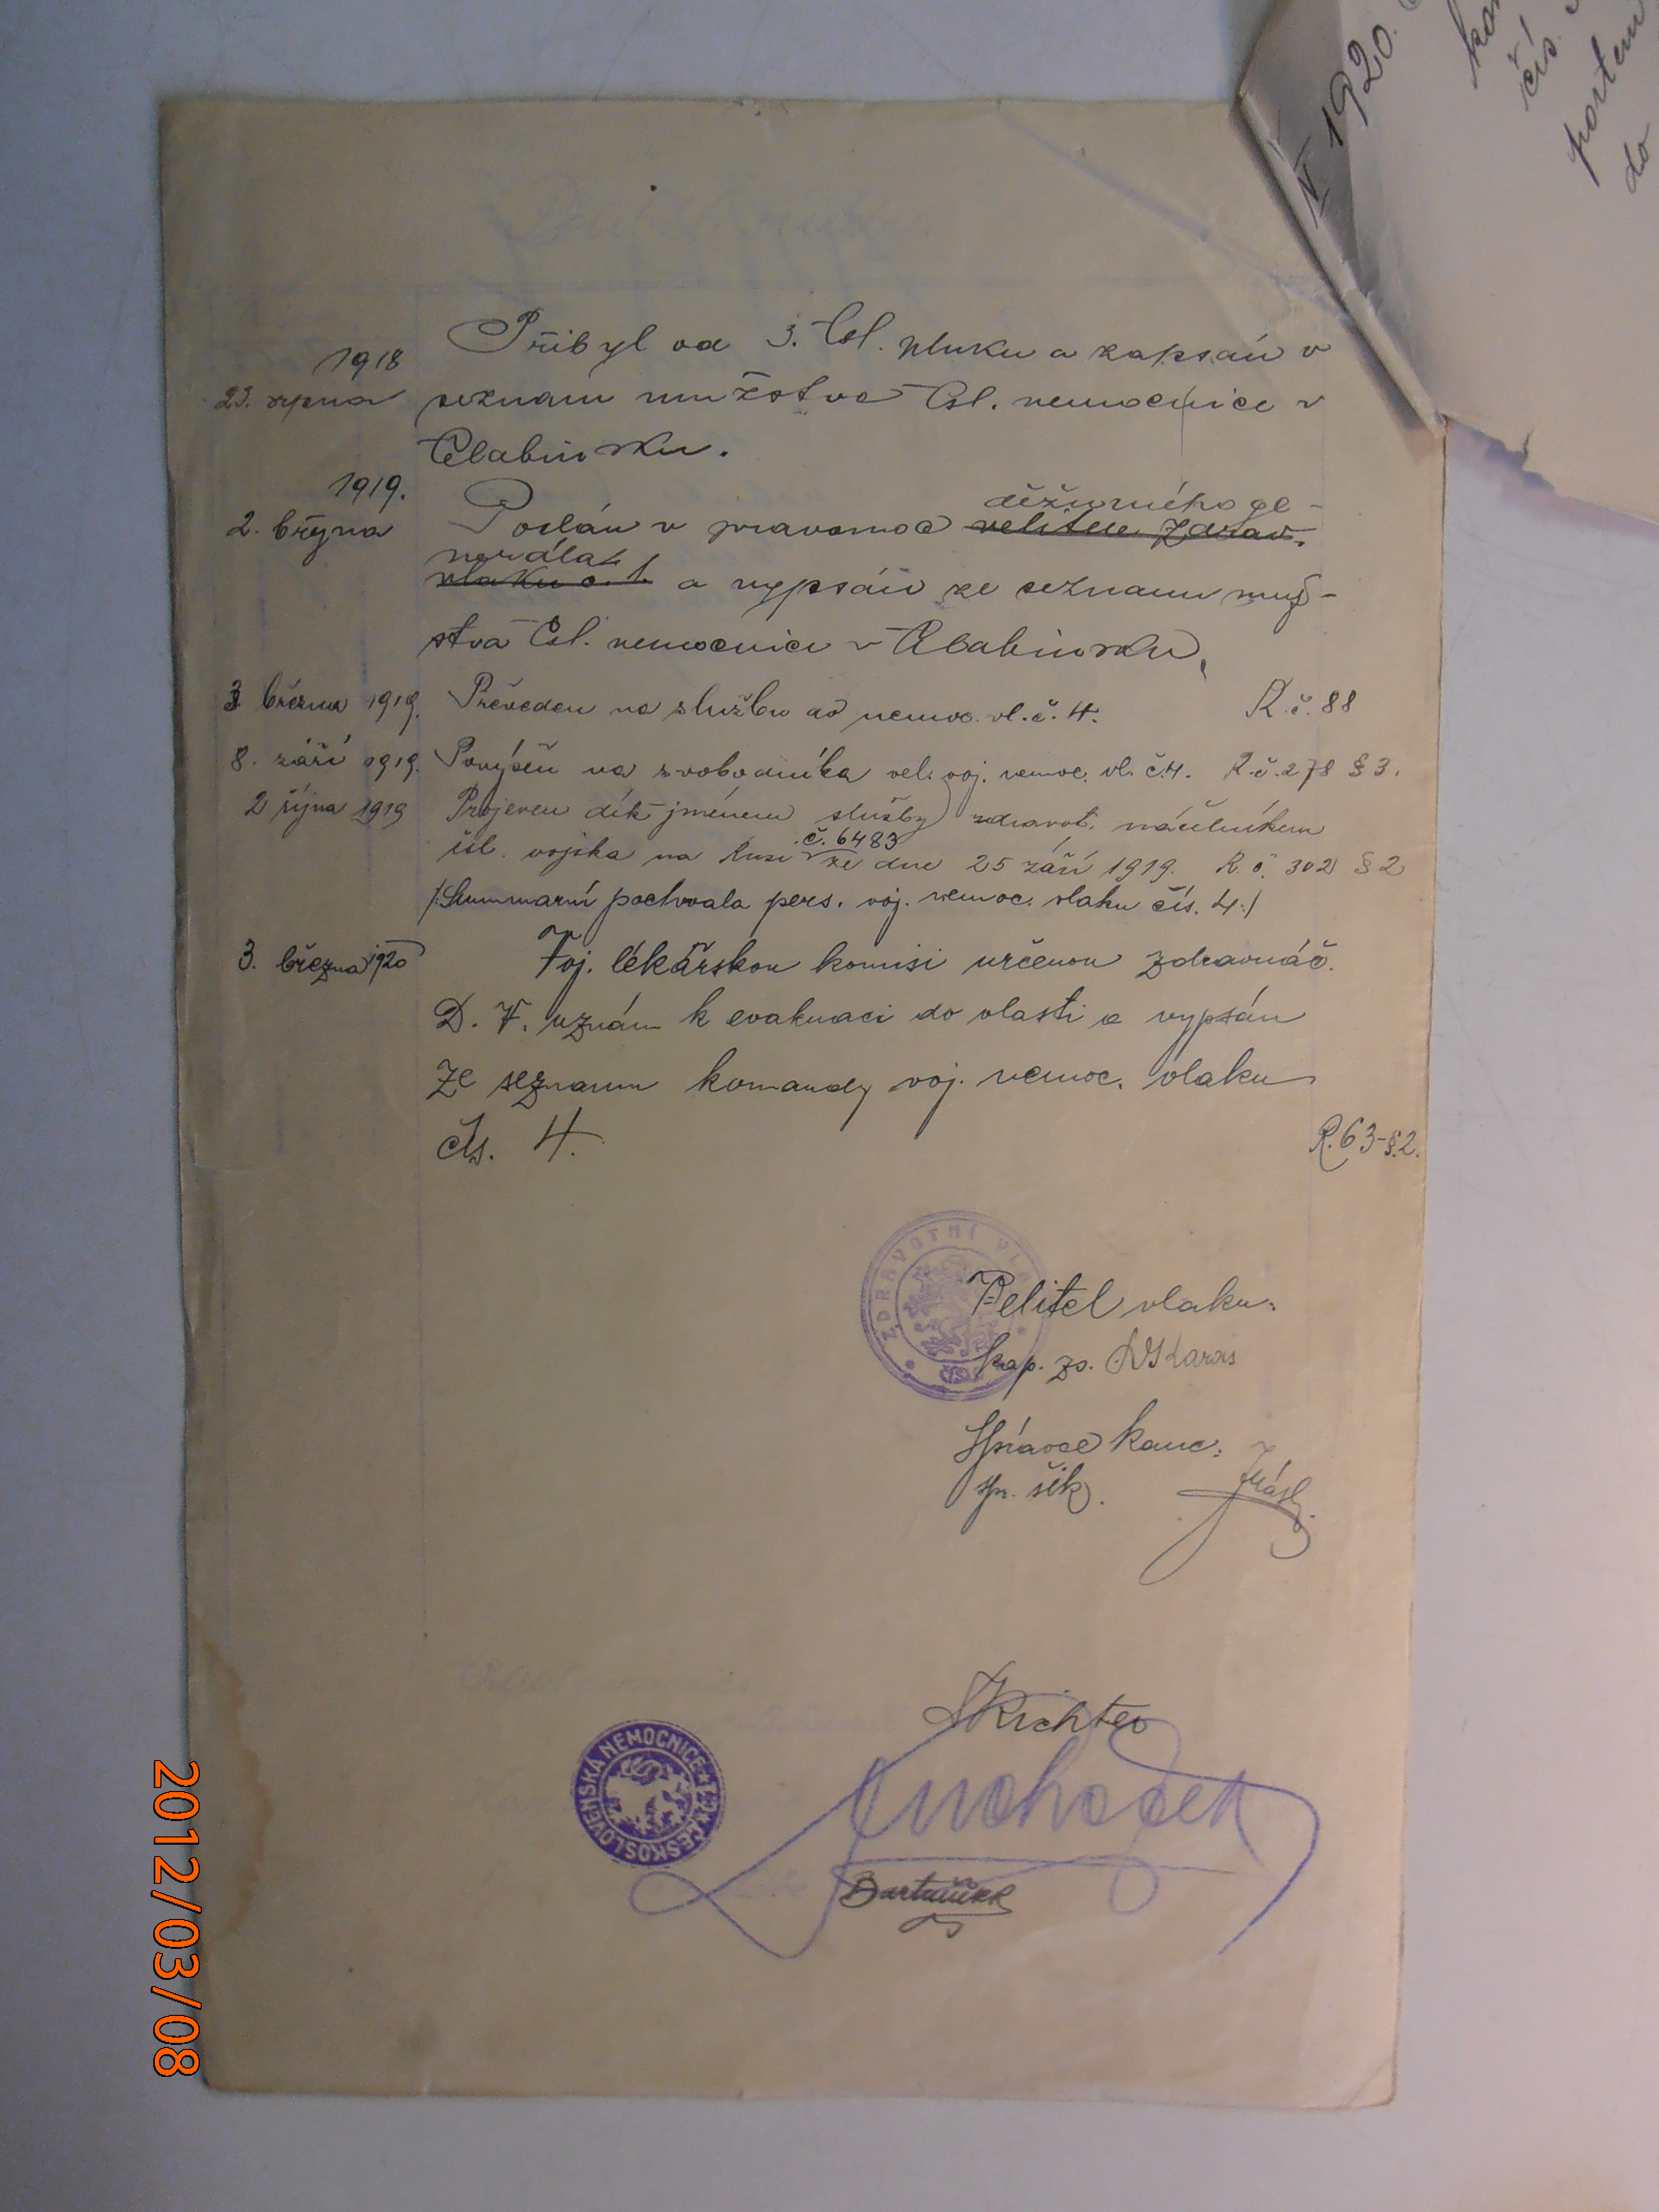 V 1920.
čís.
do
1918
23. srpna
Přibyl od 3. Čsl. pluku a zapsán v
seznam mužstva Čsl. nemocnice v
Čelabinsku.
1919.
2. března
děžurného ge-
Poslán v pravomoc velitele zdrav.
nerála
vlaku č. 1. a vypsán ze seznamu muž-
stva Čsl. nemocnice v Čelabinsku.
3 března 1919. Převeden na službu do nemoc. vl. č. 4. R. č. 88
8. září 1919. Povýšen na svobodníka vel. voj. nemoc. vl. č. 4. R. č. 278 § 3.
2 října 1919 Projeven dík jménem služby zdravot. náčelníkem
č. 6483
čsl. vojska na Rusi ze dne 25 září 1919. R. č. 302 § 2
/:Summarní pochvala pers. voj. nemoc. vlaku čís. 4:/
3. března 1920 Voj. lékařskou komisi určenou zdravnáč.
D. V. uznán k evakuaci do vlasti a vypsán
ze seznamu komandy voj. nemoc. vlaku
čís. 4. R. 63-§.2.
ZDRAVOTNÍ VLA
Velitel vlaku:
kap. zs.
Správce kanc.:
šik.
Richter
ČESKOSLOVENSKÁ NEMOCNICE
2012/03/08